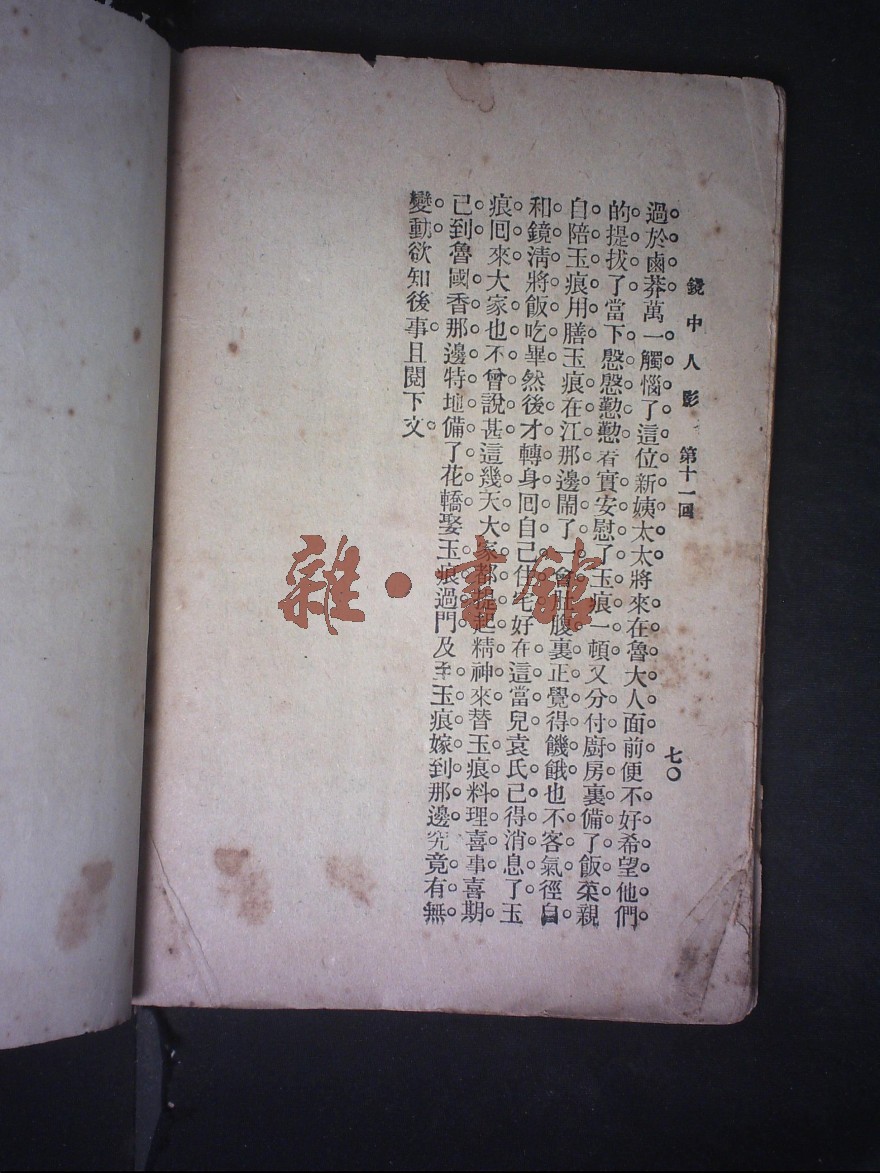 鏡中人影 第十一回 七〇
過於鹵莽萬一觸惱了這位新姨太太將來在魯大人面前便不好希望他們
的提拔了當下慇慇懃懃着實安慰了玉痕一頓又分付廚房裏備了飯菜親
自陪玉痕用膳玉痕在江那邊鬧了一會肚腹裏正覺得饑餓也不客氣徑自
和鏡清將飯吃畢然後才轉身回自己住宅好在這當兒袁氏已得消息了玉
痕回來大家也不曾說甚這幾天大家都提起精神來替玉痕料理喜事喜期
已到魯國香那邊特地備了花轎娶玉痕過門及至玉痕嫁到那邊究竟有無
變動欲知後事且閱下文
雜·書館